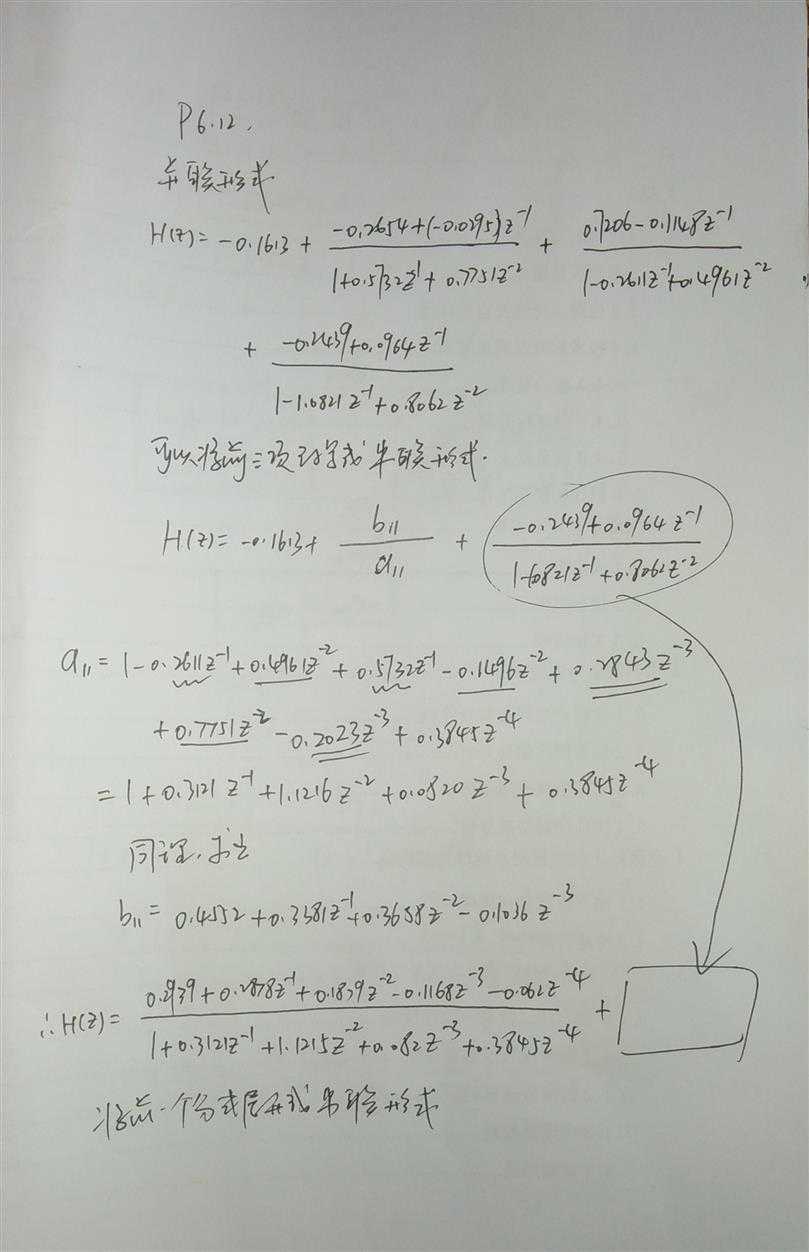 P6.12.
并联形式
H(z) = -0.1613 + \frac{-0.2654+(-0.0295)z^{-1}}{1+0.5732z^{-1}+0.7751z^{-2}} + \frac{0.7206-0.1148z^{-1}}{1-0.2611z^{-1}+0.4961z^{-2}}
+ \frac{-0.2439+0.0964z^{-1}}{1-1.0821z^{-1}+0.8062z^{-2}}
可以将前三项改写成串联形式.
H(z) = -0.1613 + \frac{b_{11}}{a_{11}} + \frac{-0.2439+0.0964z^{-1}}{1-1.0821z^{-1}+0.8062z^{-2}}
a_{11} = 1-0.2611z^{-1}+0.4961z^{-2}+0.5732z^{-1}-0.1496z^{-2}+0.2843z^{-3}
+0.7751z^{-2}-0.2023z^{-3}+0.3845z^{-4}
= 1+0.3121z^{-1}+1.1216z^{-2}+0.0820z^{-3}+0.3845z^{-4}
同理,求出
b_{11} = 0.4552+0.3381z^{-1}+0.3658z^{-2}-0.1036z^{-3}
∴H(z) = \frac{0.2939+0.2878z^{-1}+0.1839z^{-2}-0.1168z^{-3}-0.062z^{-4}}{1+0.3121z^{-1}+1.1215z^{-2}+0.082z^{-3}+0.3845z^{-4}} +
将前一个分式展开成串联形式